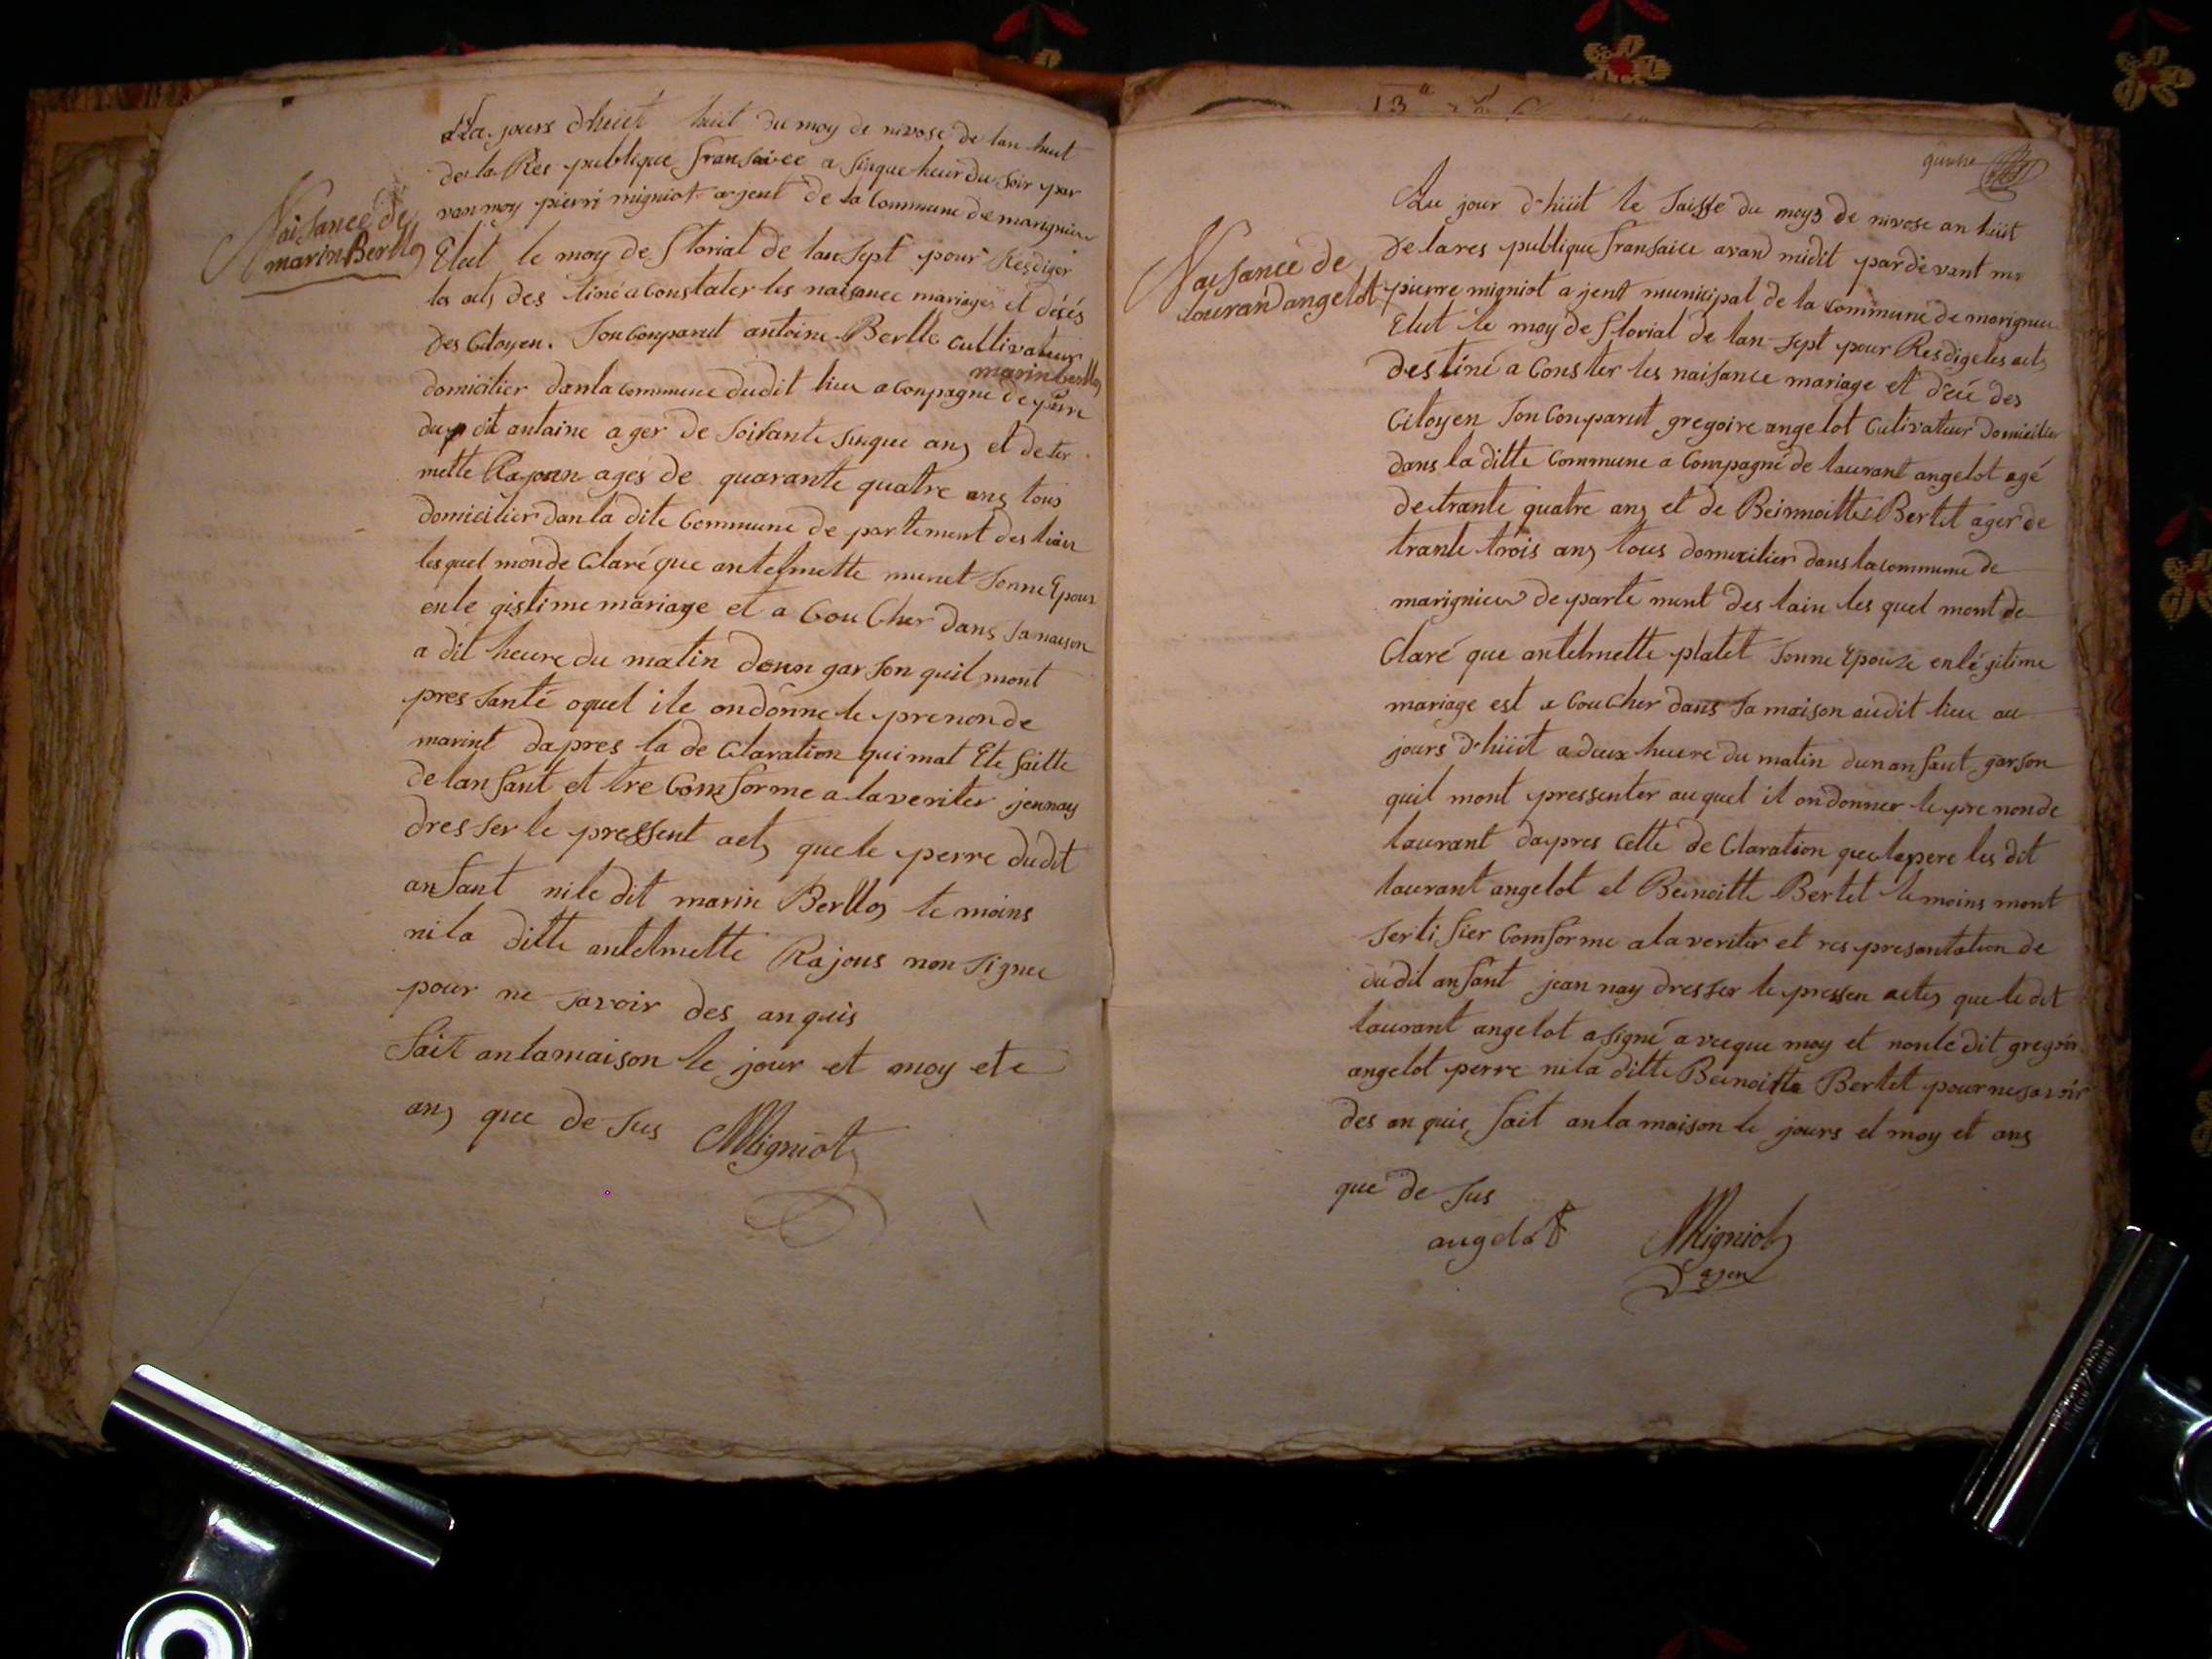 Naisance de
marin Berllo
jours d'huit huit du moy de nivose de lan huit
de la Res publique fransaice a sinque heur du soir par
van moy pierri migniot ajent de la Commune de marignieu
Elut le moy de florial de lan sept pour Resdiger
les acts des tiné a Constater les naisance mariages et désés
des Citoyen. Son Conparut antoine Berllo Cultivateur
marin berllo
domicilier dans la Commune dudit lieu a conpagne de perre
du dit antoine ager de soisante sinque ans et de ter
mette Rajoun agés de quarante quatre ans tous
domicilier dan la dite Commune de partement des lain
les quel monde Claré que antelmette munet Sonne Epous
en le gistime mariage et a Cou Cher dans sa naison
a dit heure du matin donn garson quil mont
pres santé oquel ile on donne le prenon de
marint dapres la de Claration qui mat Ete faitte
de lan fant et tre Comforme a la veriter jennay
dresser le pressent act que le perre dudit
anfant ni le dit marin Berllo te moins
ni la ditte antelmette Rajous non signee
pour ne savoir des anquis
fait an la maison le jour et moy et e
ans que de sus Migniot
13
Naisance de
louran angelot
Au jour d'hüit le saisse du moys de nivose an hüit
de la res publique fransaice avand midit par de vant mo
pierre migniot ajent municipal de la Commune de marignieu
Elut le moy de florial de lan sept pour Resdige les acts
destiné a Conster les naisance mariage et décé des
Citoyen Son Conparut gregoire angelot Cutivateur domicilier
dans la ditte Commune a Compagné de laurant angelot agé
de trante quatre ans et de Beinnoitte Bertet ager de
trante trois ans tous domicilier dans la commune de
marignieu de parte ment des lain les quel mont de
Claré que antelmette platet Sonne Epouze en légitime
mariage est a Cou Cher dans sa maison audit lieu au
jours d'hüit a deux heure du matin dun anfant garson
quil mont pressenter auquel il on donner le pre non de
laurant dapres Cette de Claration que le pere les dit
laurant angelot et Beinoitte Bertet temoins mont
serti fier Comforme a la veriter et res presantation de
dudit anfant jean nay dresser le pressen actes que le dit
laurant angelot a signé a vecque moy et non le dit gregoir
angelot perre ni la ditte Beinoitte Bertet pour ne savoir
des an quis fait an la maison le jours et moy et ans
que de sus
angelot Migniot
ajen